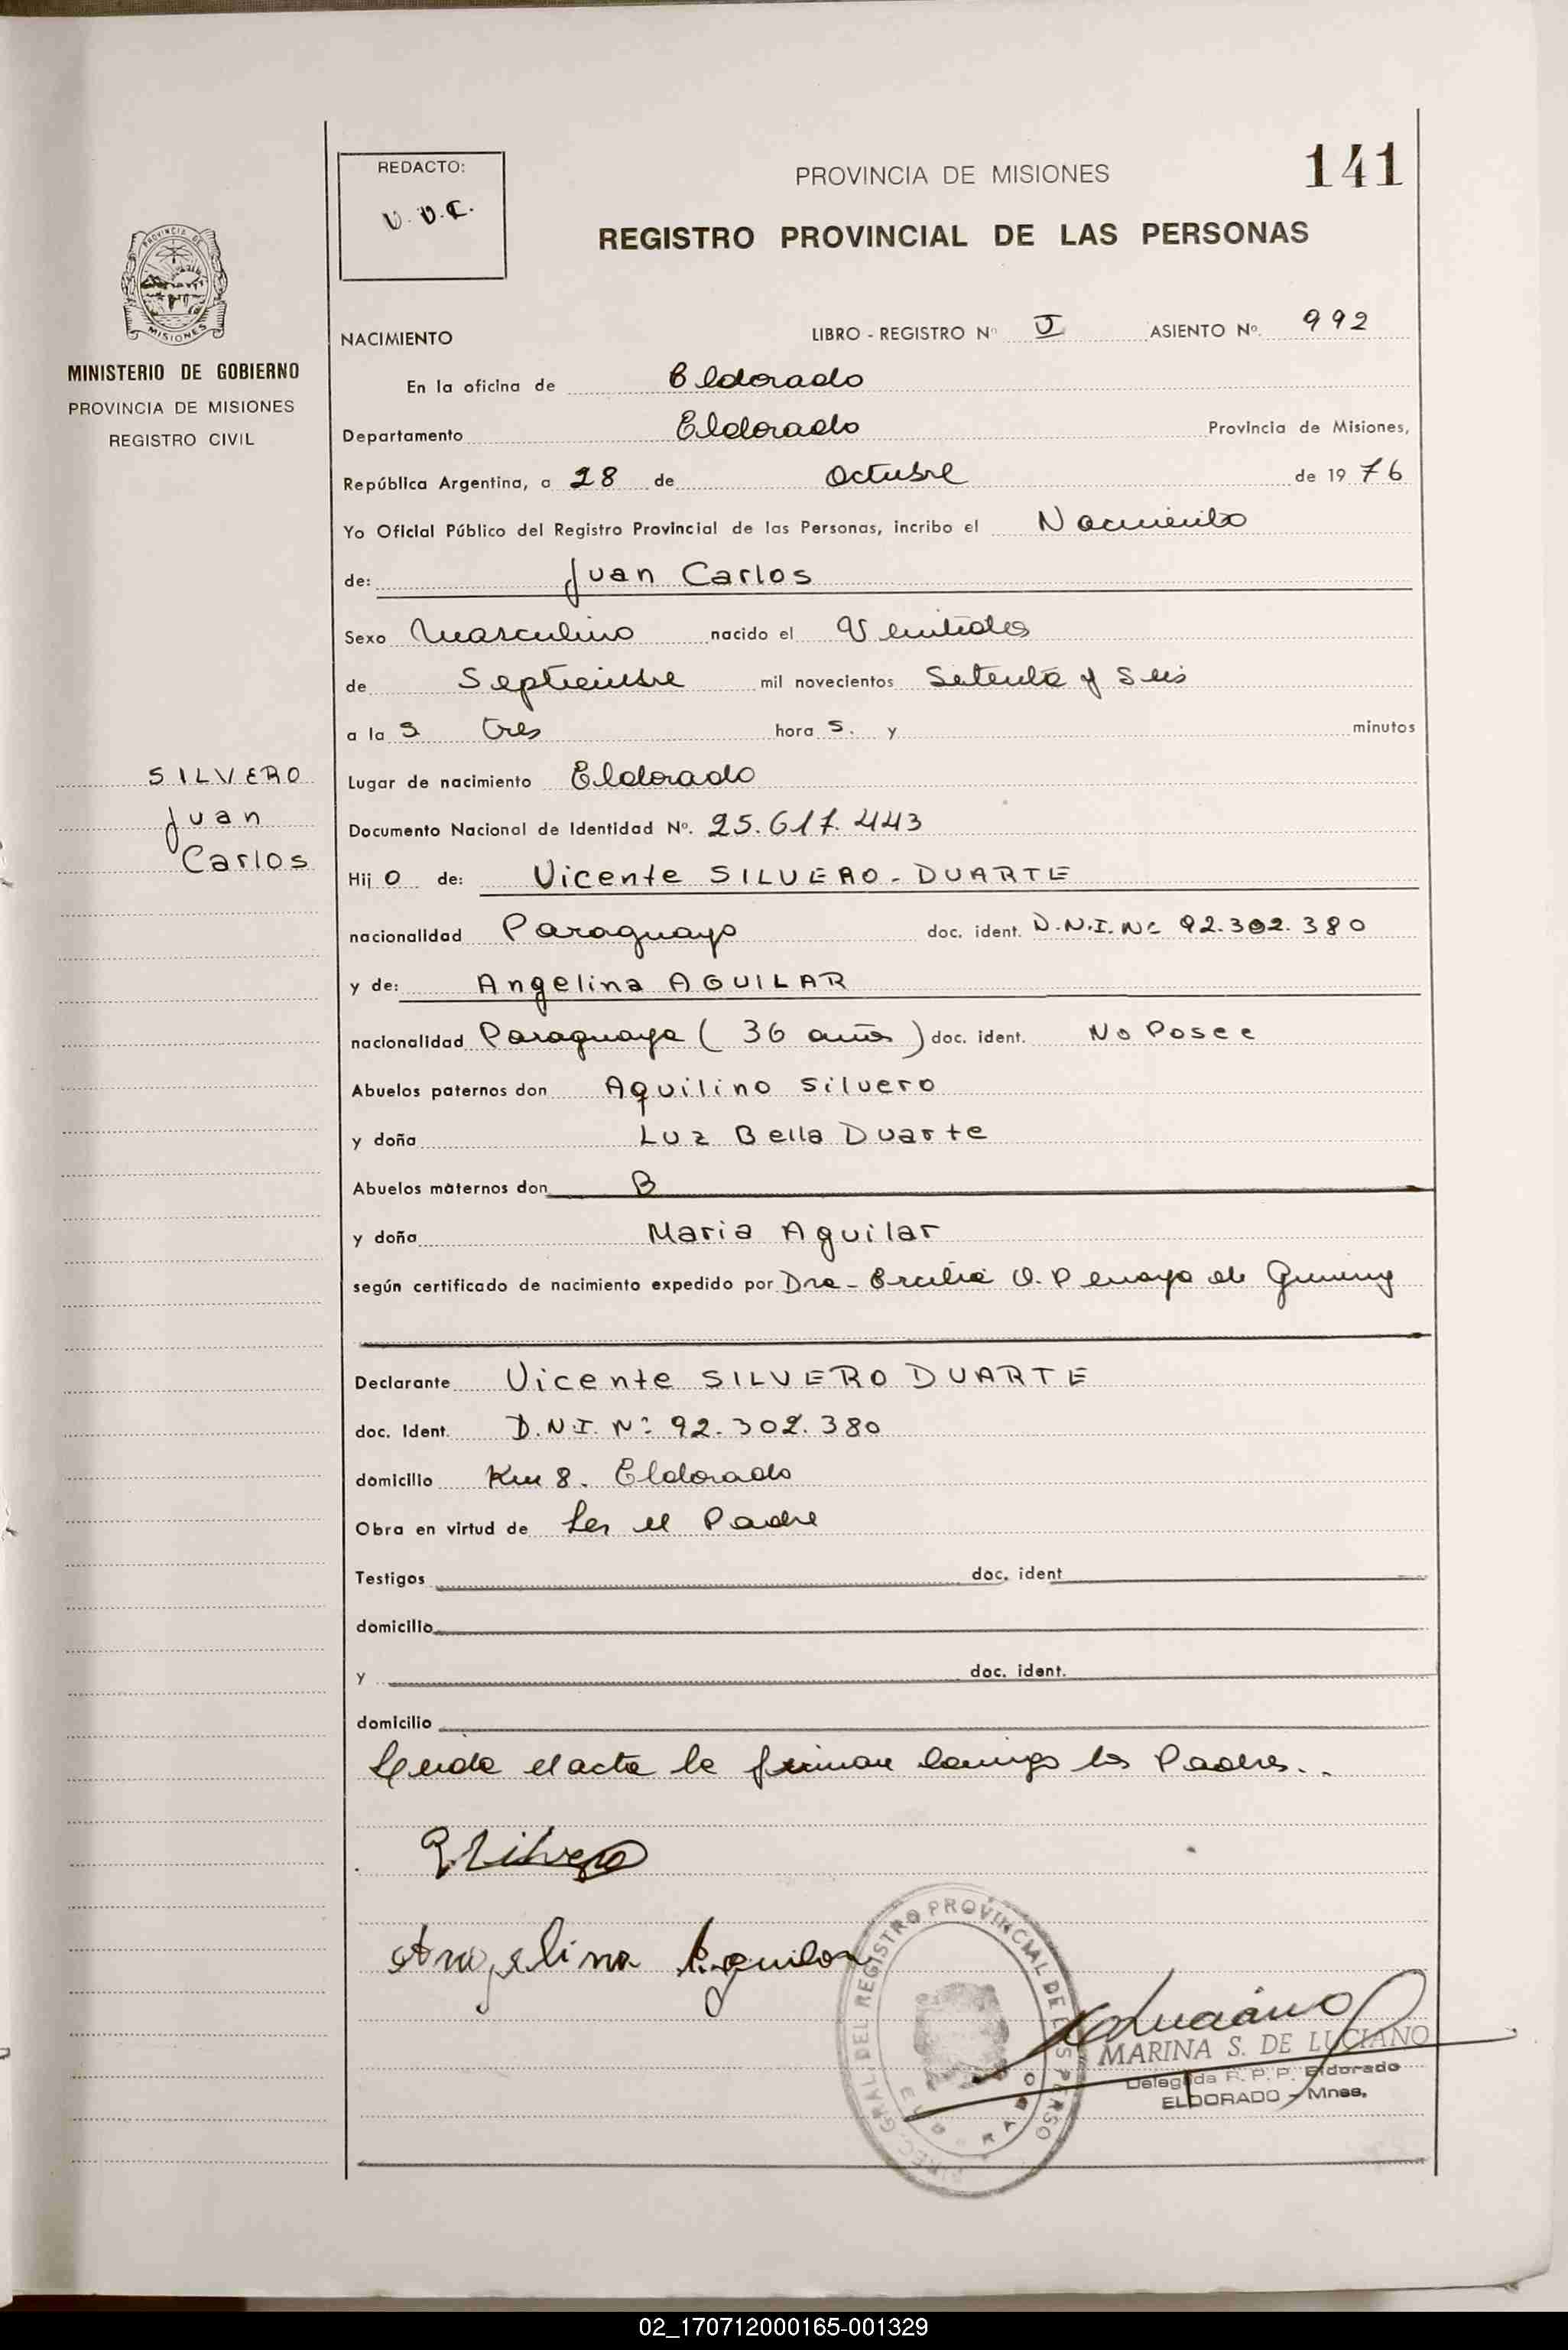 REDACTO:
V.V.C.
PROVINCIA DE MISIONES
141
REGISTRO PROVINCIAL DE LAS PERSONAS
PROVINCIA DE
MISIONES
MINISTERIO DE GOBIERNO
PROVINCIA DE MISIONES
REGISTRO CIVIL
SILVERO
Juan
Carlos
NACIMIENTO LIBRO - REGISTRO Nº I ASIENTO Nº. 992
En la oficina de Eldorado
Departamento Eldorado Provincia de Misiones,
República Argentina, a 28 de Octubre de 19 76
Yo Oficial Público del Registro Provincial de las Personas, incribo el Nacimiento
de: Juan Carlos
Sexo Masculino nacido el Veintidos
de Septiembre mil novecientos Setenta y Seis
a la s tres hora s. y minutos
Lugar de nacimiento Eldorado
Documento Nacional de Identidad Nº. 25.617.443
Hij o de: Vicente SILVERO - DUARTE
nacionalidad Paraguayo doc. ident. D.N.I. Nº 92.302.380
y de: Angelina AGUILAR
nacionalidad Paraguaya ( 36 años ) doc. ident. No Posee
Abuelos paternos don Aquilino Silvero
y doña Luz Bella Duarte
Abuelos maternos don
y doña Maria Aguilar
según certificado de nacimiento expedido por Dra - Ercilia O. Penayo de
Declarante Vicente SILVERO DUARTE
doc. Ident. D.N.I. Nº 92.302.380
domicilio Km 8. Eldorado
Obra en virtud de Ser el Padre
Testigos doc. ident
domicilio
y doc. ident.
domicilio
Leida el acta la firman conmigo los Padres..
Silvero
Angelina Aguilar
DIREC. GRAL. DEL REGISTRO PROVINCIAL DE LAS PERSO
ELDORADO
Luciano
MARINA S. DE LUCIANO
Delegada R. P. P. Eldorado
ELDORADO - Mnes.
02_170712000165-001329